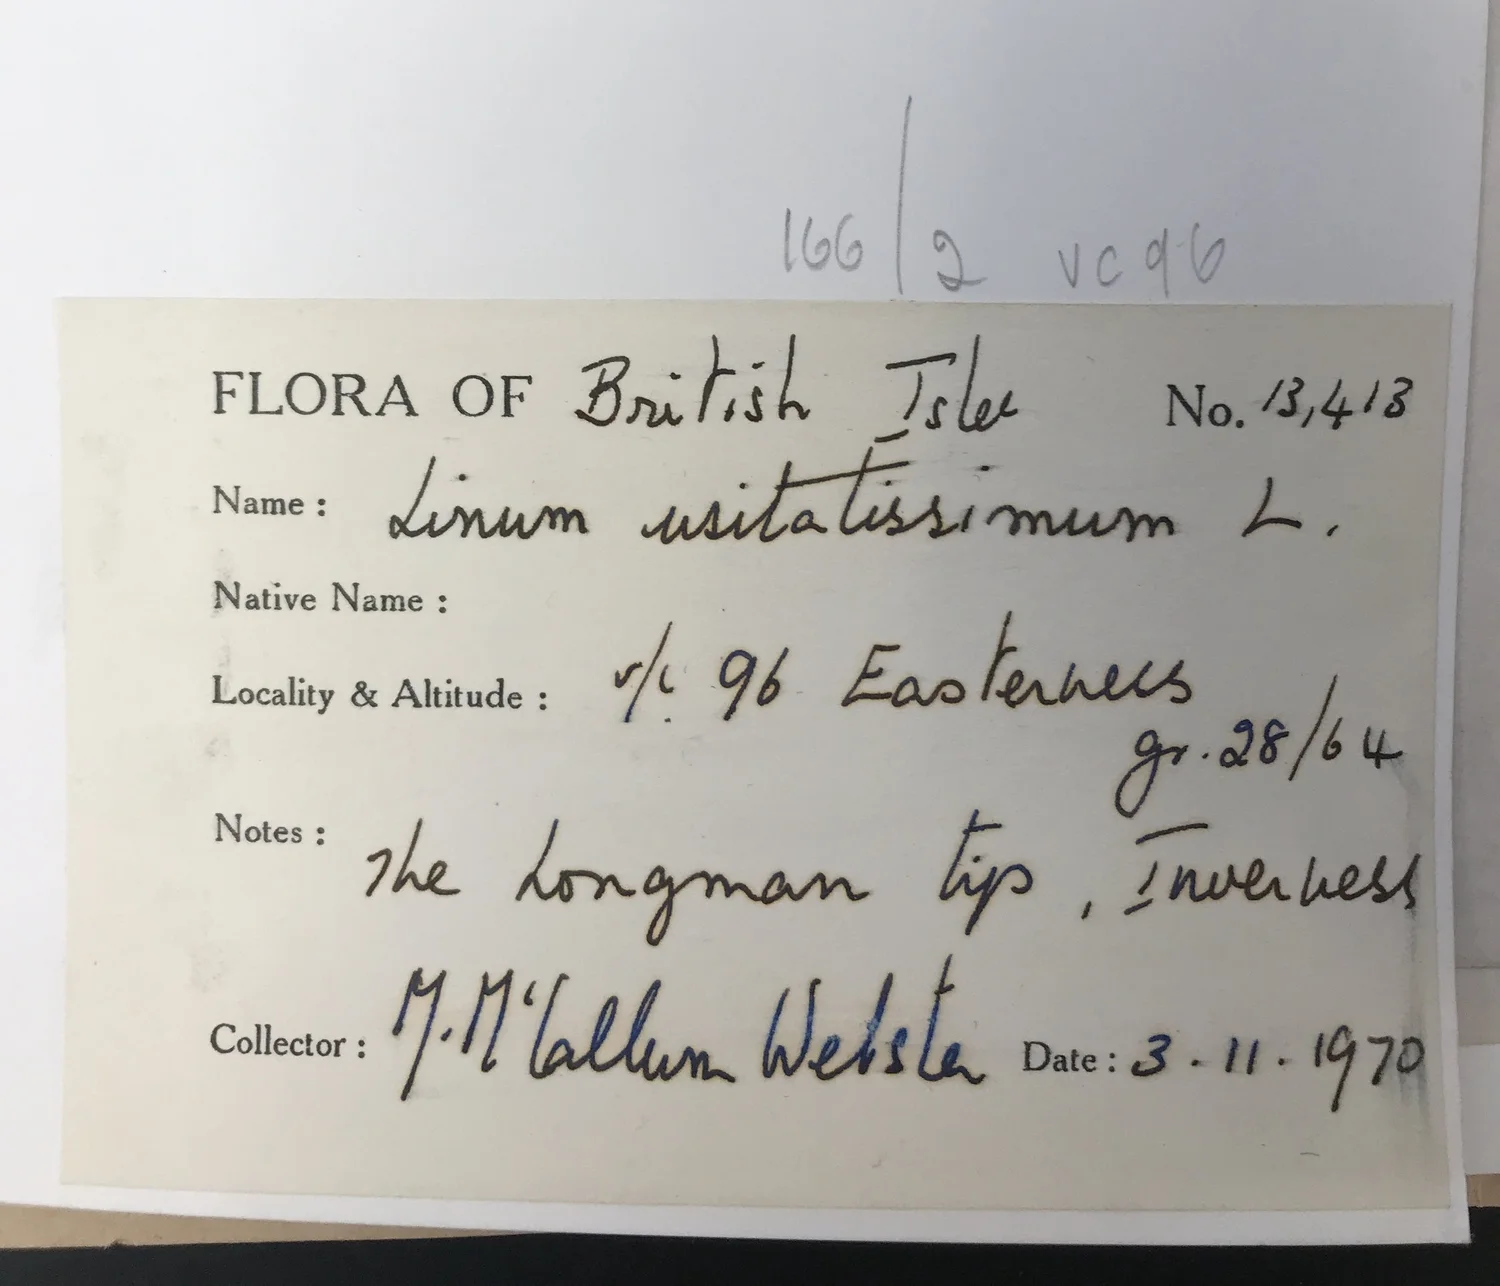 166/2 vc 96
FLORA OF British Isles No. 13,413
Name : Linum usitatissimum L.
Native Name :
Locality & Altitude : v/c. 96 Easterness
gr. 28/64
Notes :
The Longman tip, Inverness
Collector : M. McCallum Webster Date : 3 . 11 . 1970